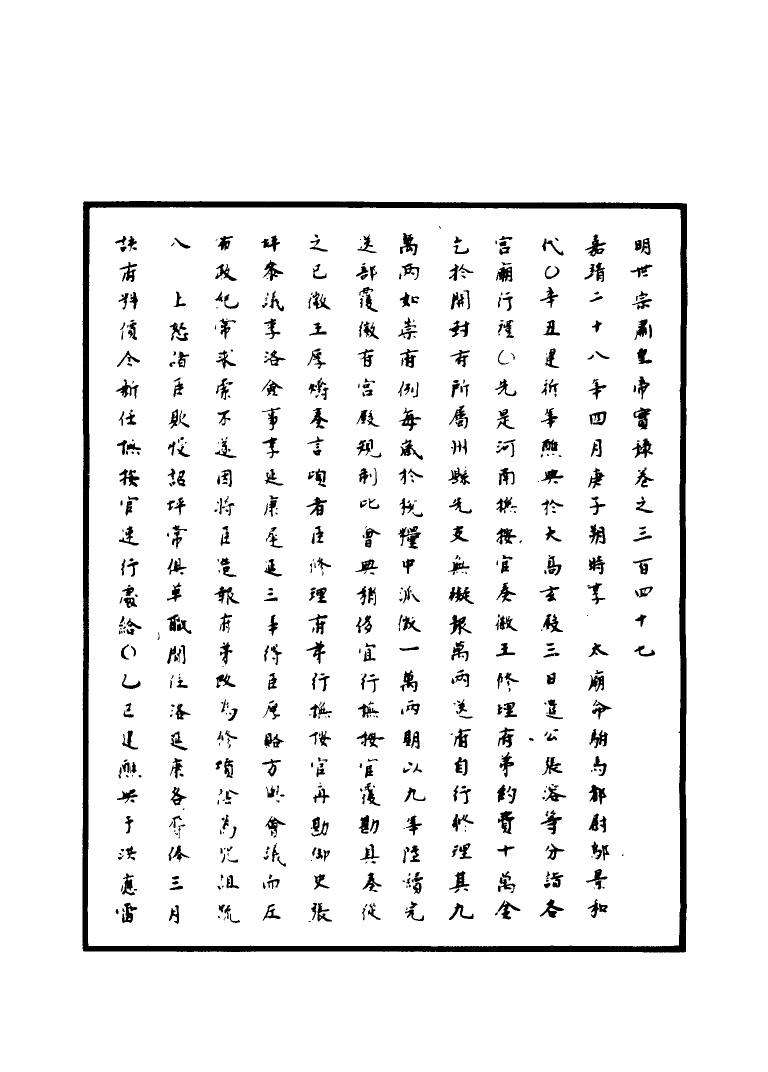 明世宗肅皇帝實錄卷之三百四十七
嘉靖二十八年四月庚子朔時享　太廟命駙馬都尉鄔景和
代○辛丑建祈年醮典於大高玄殿三日遣公張溶等分詣各
宮廟行禮○先是河南撫按官奏徽王修理府第約費十萬金
乞於開封府所屬州縣先支無礙銀萬兩送府自行修理其九
萬兩如崇府例每歲於稅糧中派徵一萬兩期以九年陸續完
送部覆徽府宮殿規制比會典稍侈宜行撫按官覆勘具奏從
之已徽王厚爝奏言頃者臣修理府第行撫按官再勘御史張
坪參議李洛僉事李延康屋延三年得臣厚賂方與會議而左
布政紀常求索不遂因將臣造報府第改為修墳
八　上怒詣臣欺慢詔坪常俱革職閒住洛延康各奪俸三月
該府料價令新任撫按官速行處給○乙巳建醮典于洪應雷